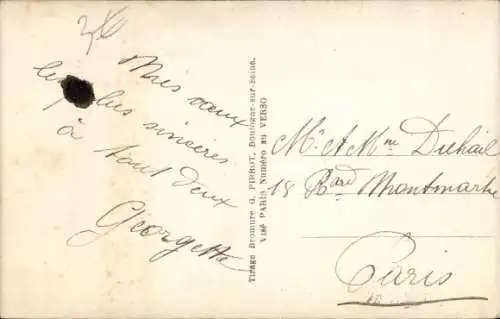 Mes vœux
les plus sincères
à tout deux
Georgette
Tirage Bromure G. PIPROT, Boulogne-sur-Seine.
Visé PARIS Numéro au VERSO
Mr & Mme Duhail
18 Bard Montmartre
Paris